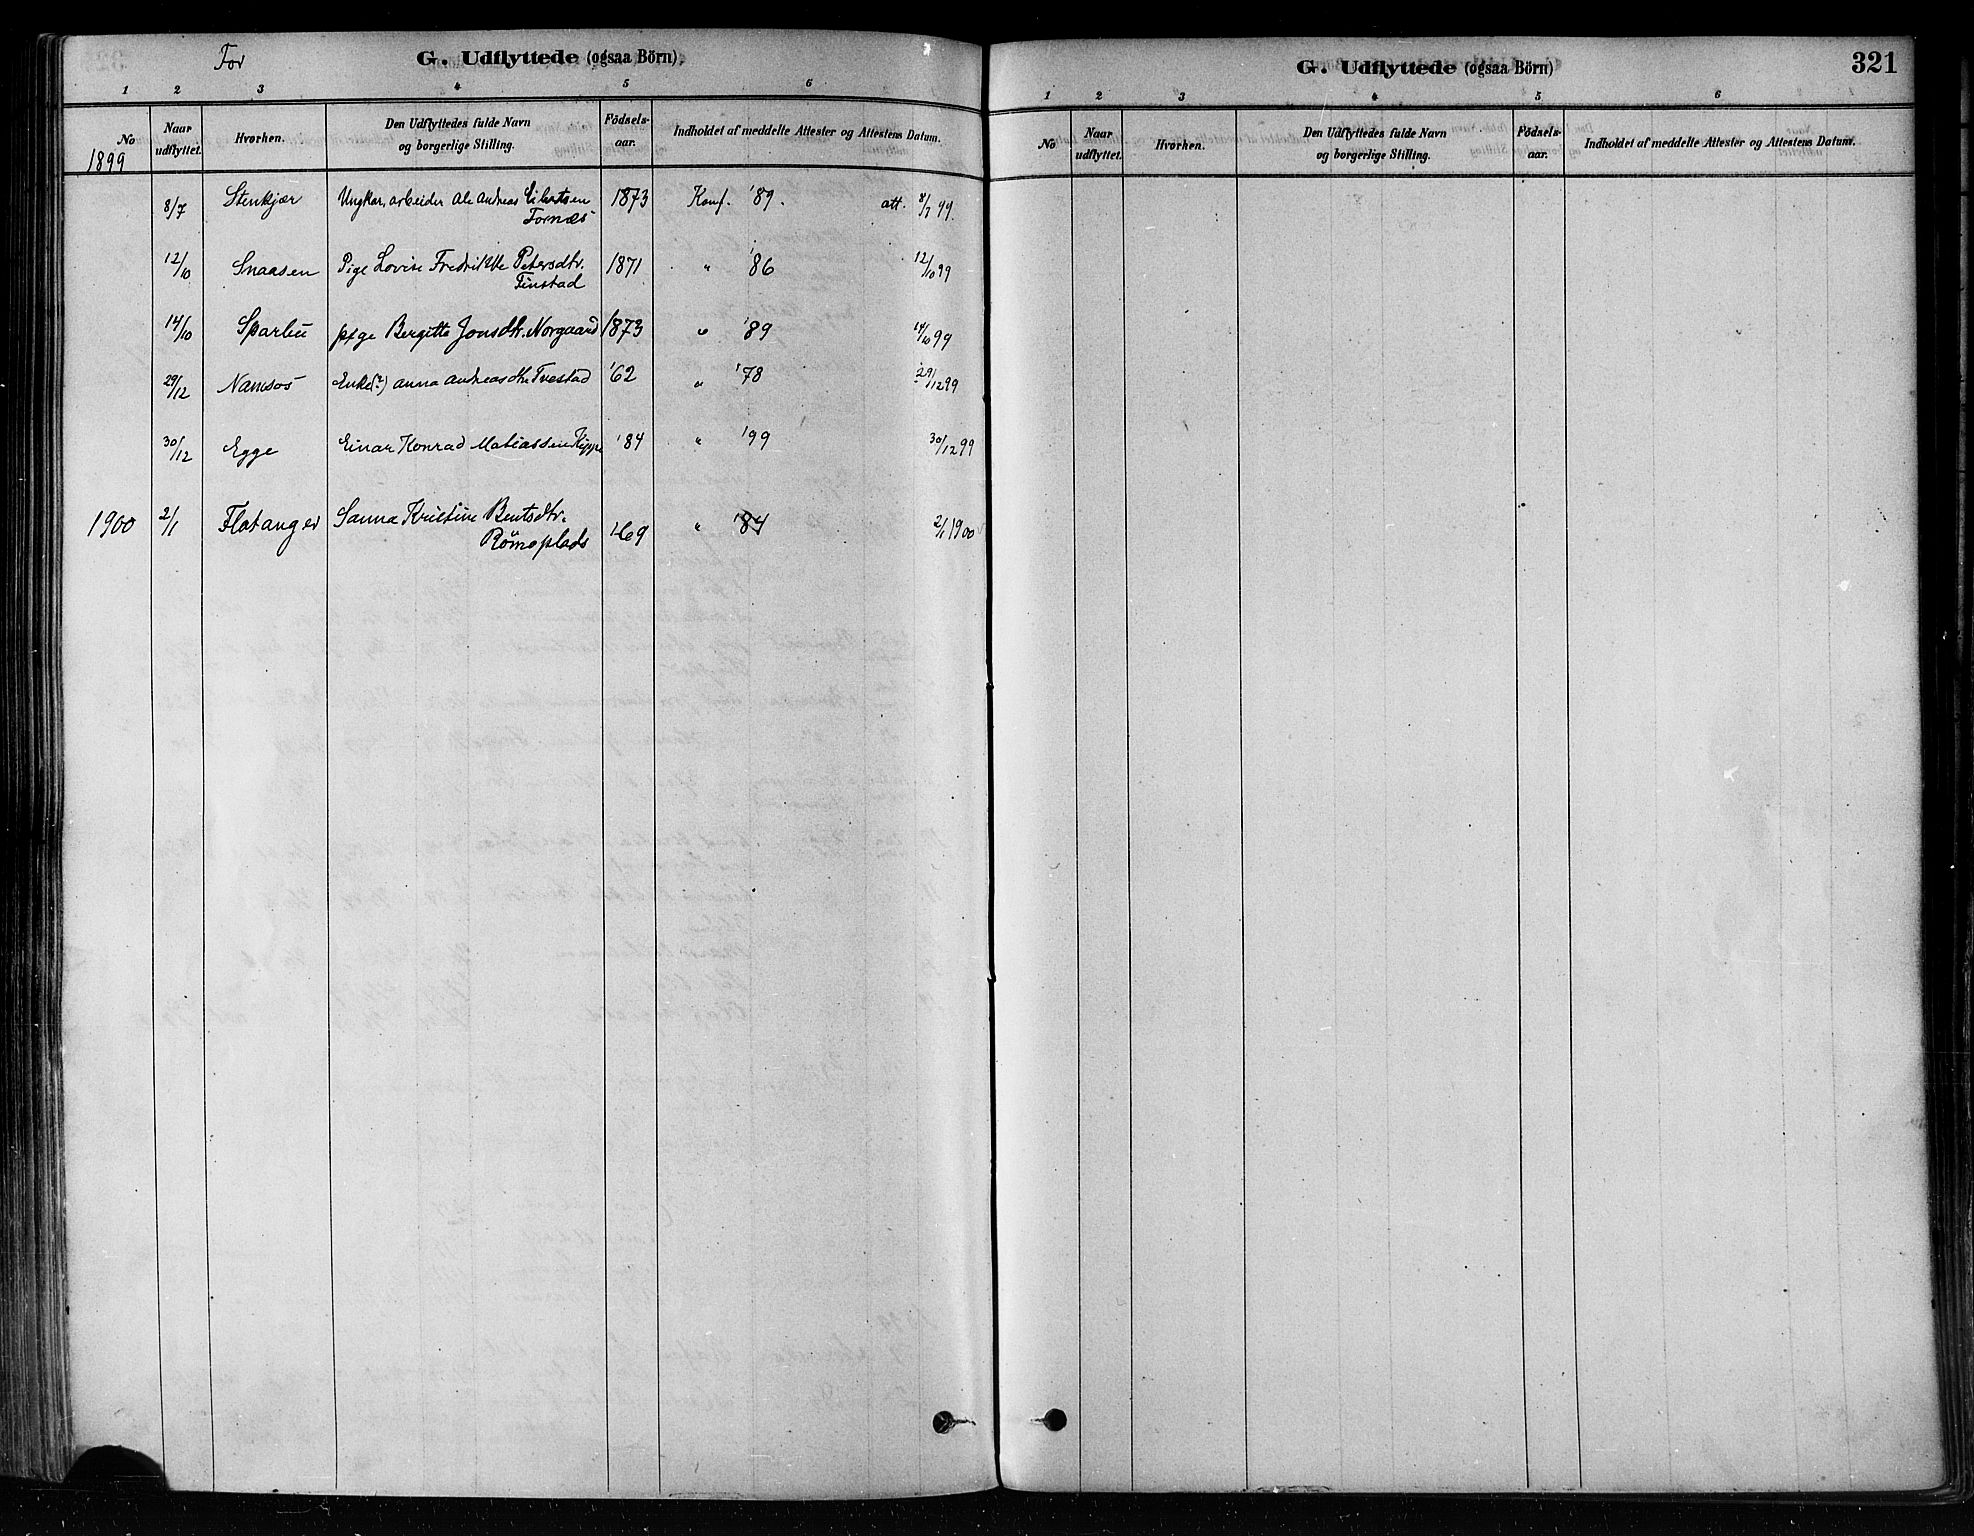 For
G. Udflyttede (ogsaa Börn).
1 2 3 4 5 6
No
Naar udflyttet.
Hvorhen.
Den Udflyttedes fulde Navn og borgerlige Stilling.
Födsels-aar.
Indholdet af meddelte Attester og Attestens Datum.
1899
8/7 Stenkjær Ungkar, arbeider Ole Andreas Eilertsen 1873 Konf. '89. att. 8/7 99.
Fornæs
12/10 Snaasen Pige Lovise Fredrikke Petersdtr. 1871 " '86 12/10 99
Finstad
14/10 Sparbu pige Bergitta Jonsdtr. Norgaard 1873 " '89 14/10 99
29/12 Namsos Enke(?) Anna Andreasdtr Tvestad '62 " '78 29/12 99
30/12 Egge Einar Konrad Matiassen '84 " '99 30/12 99
1900 2/1 Flatanger Sanna Kristine Bentsdtr. '69 " '84 2/1 1900
Römoplads
G. Udflyttede (ogsaa Börn)
321
1 2 3 4 5 6
No
Naar udflyttet.
Hvorhen.
Den Udflyttedes fulde Navn og borgerlige Stilling.
Födsels-aar.
Indholdet af meddelte Attester og Attestens Datum.